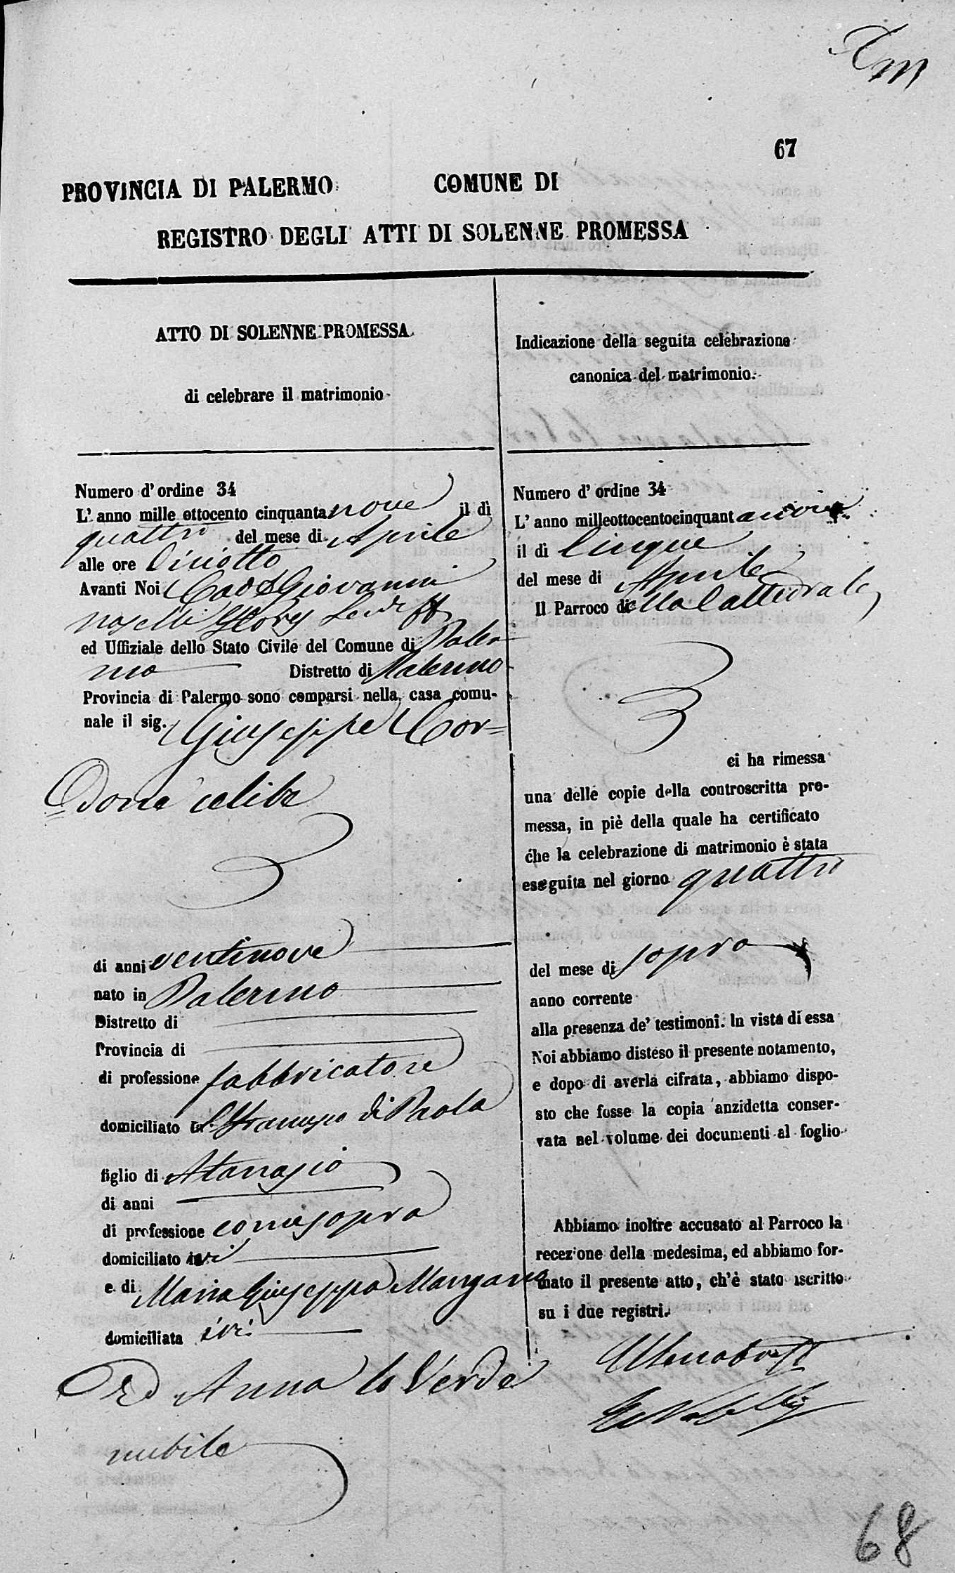 67
PROVINCIA DI PALERMO COMUNE DI
REGISTRO DEGLI ATTI DI SOLENNE PROMESSA
ATTO DI SOLENNE PROMESSA
di celebrare il matrimonio
Numero d'ordine 34
L'anno mille ottocento cinquantanove il dì
quattro del mese di Aprile
alle ore diciotto
Avanti Noi Giovanni
Naselli Flores
ed Uffiziale dello Stato Civile del Comune di Paler
mo Distretto di Palermo
Provincia di Palermo sono comparsi nella casa comu-
nale il sig. Giuseppe Cor=
=done celibe
di anni ventinove
nato in Palermo
Distretto di
Provincia di
di professione fabbricatore
domiciliato di Paola
figlio di Atanasio
di anni
di professione come sopra
domiciliato ivi
e di Maria Giuseppa Mangano
domiciliata ivi
Ed Anna lo Verde
nubile
Indicazione della seguita celebrazione
canonica del matrimonio.
Numero d'ordine 34
L'anno milleottocentocinquantanove
il dì Cinque
del mese di Aprile
Il Parroco della Cattedrale
ci ha rimessa
una delle copie della controscritta pro-
messa, in piè della quale ha certificato
che la celebrazione di matrimonio è stata
eseguita nel giorno quattro
del mese di sopra
anno corrente
alla presenza de' testimoni. In vista di essa
Noi abbiamo disteso il presente notamento,
e dopo di averla cifrata, abbiamo dispo-
sto che fosse la copia anzidetta conser-
vata nel volume dei documenti al foglio
Abbiamo inoltre accusato al Parroco la
recezione della medesima, ed abbiamo for-
mato il presente atto, ch'è stato iscritto
su i due registri.
68